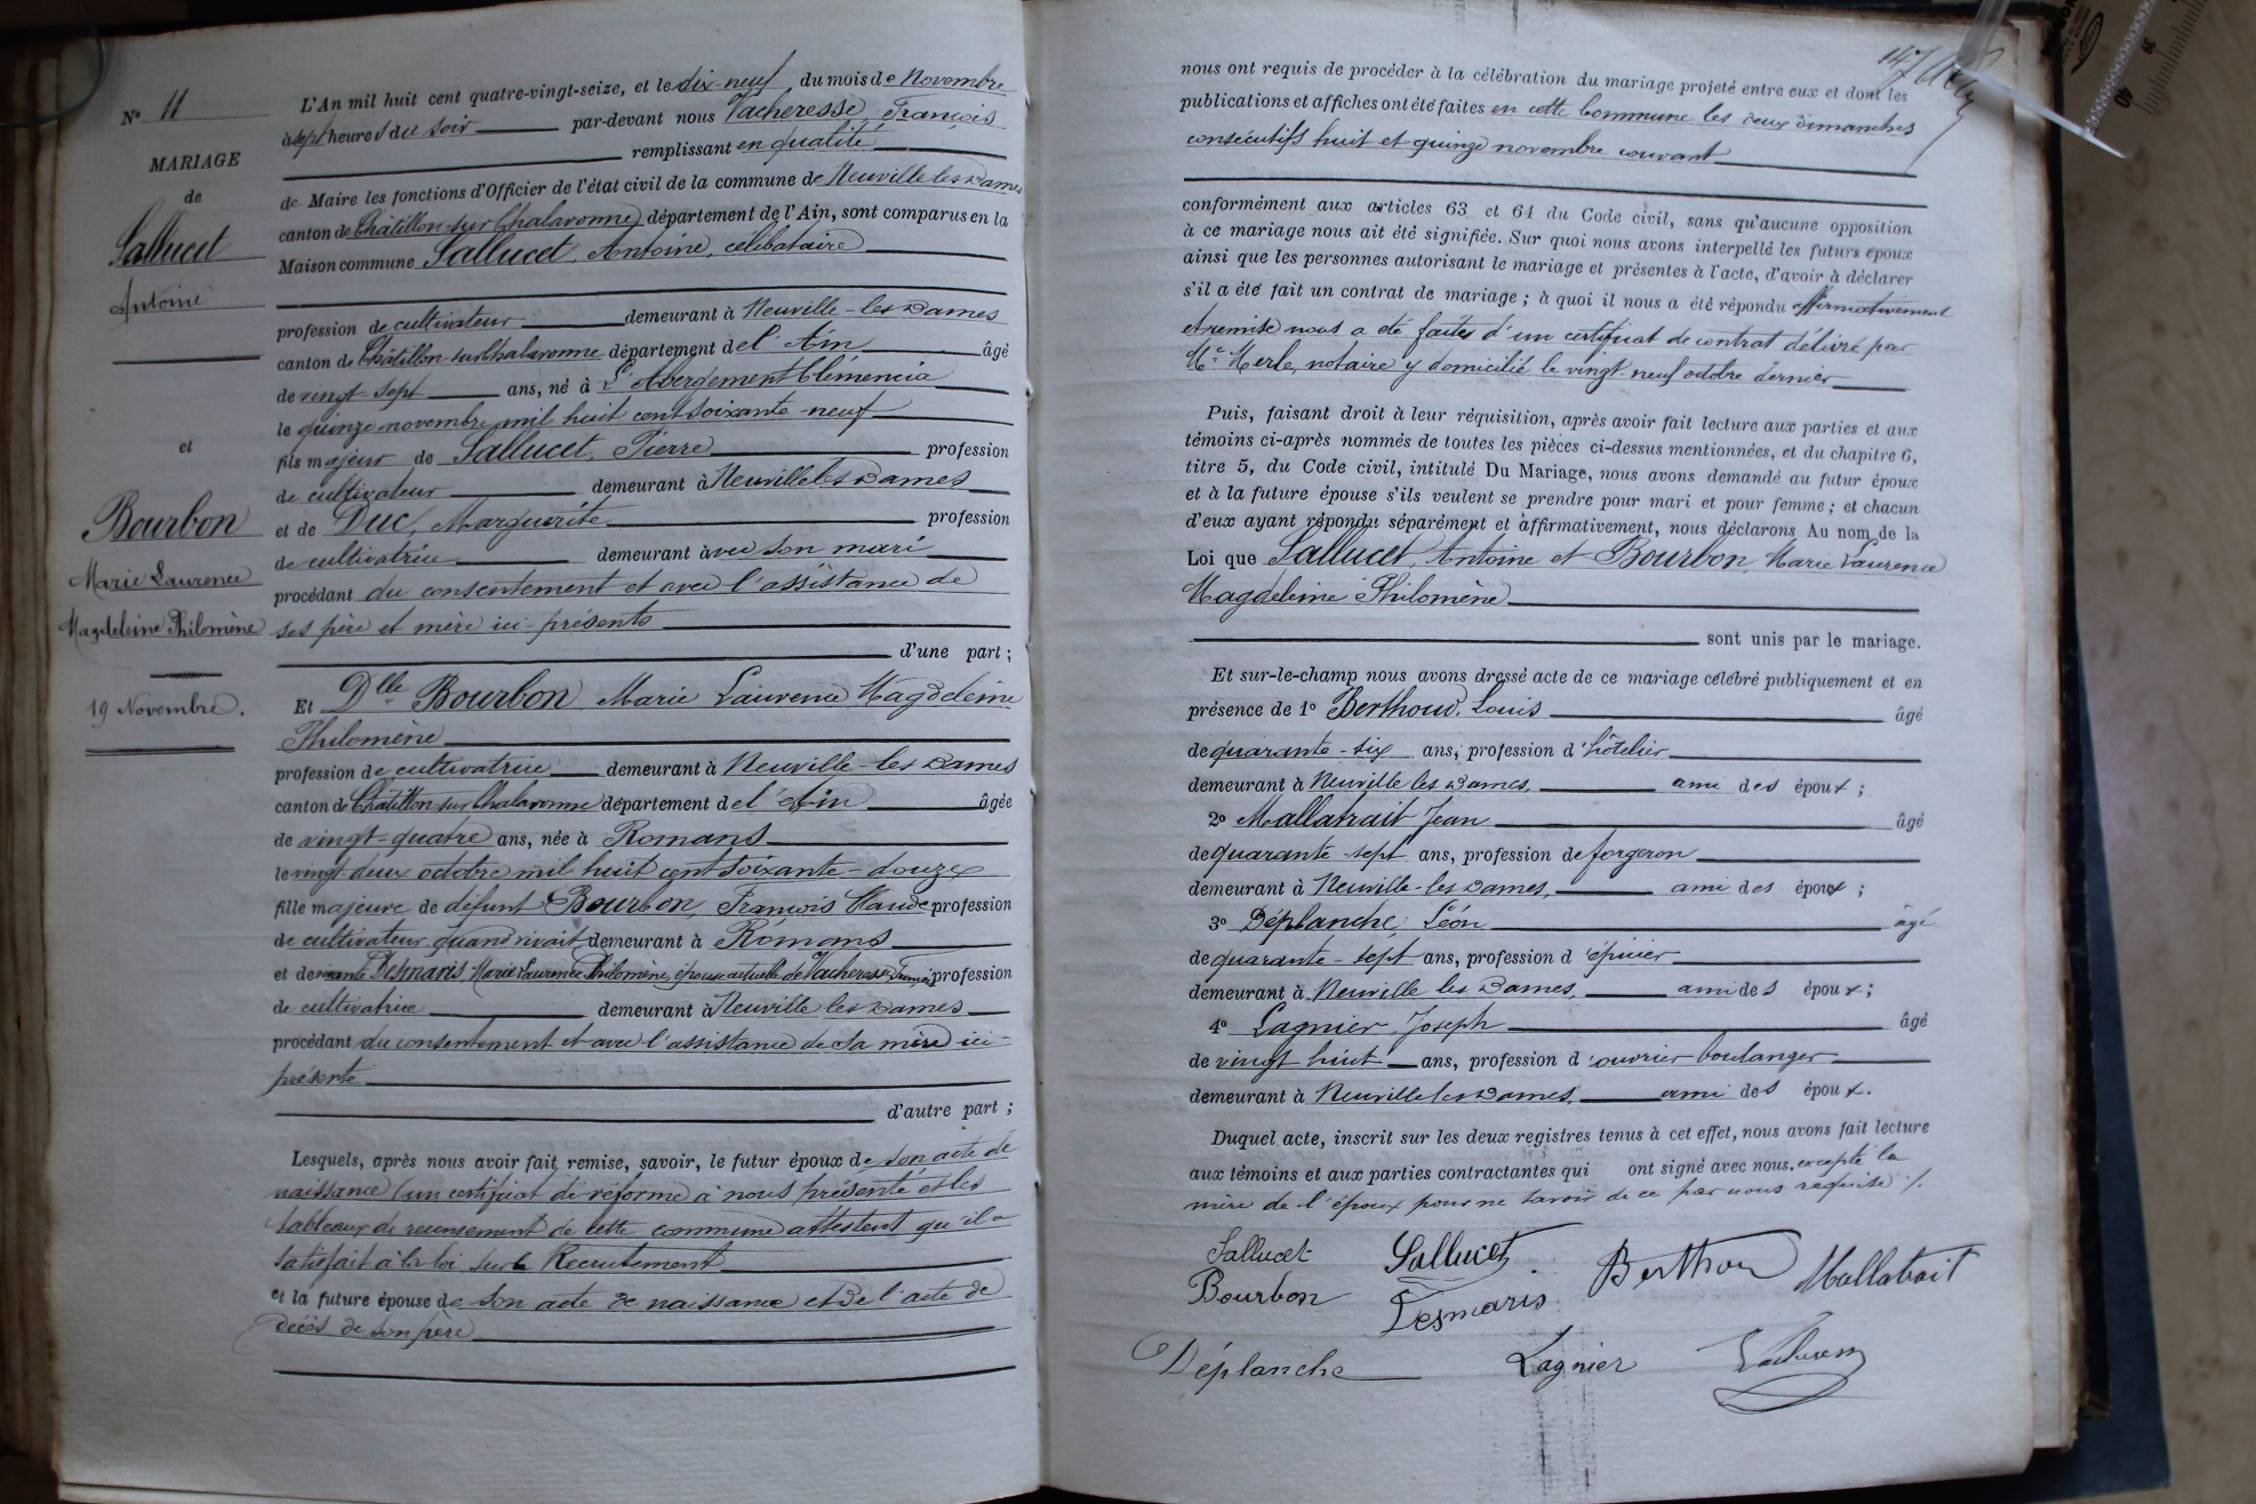 N° 11
MARIAGE
de
Sallucet
Antoine
et
Bourbon
Marie Laurence
Magdeleine Philomène
19 Novembre.
L'An mil huit cent quatre-vingt-seize, et le dix-neuf du mois de Novembre
à sept heures du soir par-devant nous Vacheresse, François
remplissant en qualité
de Maire les fonctions d'Officier de l'état civil de la commune de Neuville les Dames
canton de Châtillon-sur Chalaronne, département de l'Ain, sont comparus en la
Maison commune Sallucet, Antoine, célibataire
profession de cultivateur demeurant à Neuville-les Dames
canton de Châtillon-sur Chalaronne département de l'Ain âgé
de vingt-sept ans, né à L'Abergement Clémencia
le quinze novembre mil huit cent soixante-neuf
fils majeur de Sallucet, Pierre profession
de cultivateur demeurant à Neuville les Dames
et de Duc, Marguerite profession
de cultivatrice demeurant avec son mari
procédant du consentement et avec l'assistance de
ses père et mère ici-présents
d'une part ;
Et Dlle Bourbon, Marie Laurence Magdeleine
Philomène
profession de cultivatrice demeurant à Neuville-les Dames
canton de Châtillon-sur Chalaronne département de l'Ain âgée
de vingt-quatre ans, née à Romans
le vingt-deux octobre mil huit cent soixante-douze
fille majeure de défunt Bourbon, François Claude profession
de cultivateur quand vivait demeurant à Romans
et de vivante Desmaris, Marie Laurence Philomène, épouse actuelle de Vacheresse, François profession
de cultivatrice demeurant à Neuville les Dames
procédant du consentement et avec l'assistance de sa mère ici-
présente
d'autre part ;
Lesquels, après nous avoir fait remise, savoir, le futur époux de son acte de
naissance (un certificat de réforme à nous présenté et les
tableaux de recensement de cette commune attestent qu'il a
satisfait à la loi sur le Recrutement
et la future épouse de son acte de naissance et de l'acte de
décès de son père
147
nous ont requis de procéder à la célébration du mariage projeté entre eux et dont les
publications et affiches ont été faites en cette Commune les deux dimanches
consécutifs huit et quinze novembre courant
conformément aux articles 63 et 64 du Code civil, sans qu'aucune opposition
à ce mariage nous ait été signifiée. Sur quoi nous avons interpellé les futurs époux
ainsi que les personnes autorisant le mariage et présentes à l'acte, d'avoir à déclarer
s'il a été fait un contrat de mariage ; à quoi il nous a été répondu affirmativement
et remise nous a été faite d'un certificat de contrat délivré par
Me Merle, notaire y domicilié le vingt-neuf octobre dernier
Puis, faisant droit à leur réquisition, après avoir fait lecture aux parties et aux
témoins ci-après nommés de toutes les pièces ci-dessus mentionnées, et du chapitre 6,
titre 5, du Code civil, intitulé Du Mariage, nous avons demandé au futur époux
et à la future épouse s'ils veulent se prendre pour mari et pour femme ; et chacun
d'eux ayant répondu séparément et affirmativement, nous déclarons Au nom de la
Loi que Sallucet, Antoine et Bourbon, Marie Laurence
Magdeleine Philomène
sont unis par le mariage.
Et sur-le-champ nous avons dressé acte de ce mariage célébré publiquement et en
présence de 1° Berthoud, Louis âgé
de quarante-six ans, profession d'hôtelier
demeurant à Neuville les Dames, ami des époux ;
2° Mallatrait Jean âgé
de quarante-sept ans, profession de forgeron
demeurant à Neuville-les Dames, ami des époux ;
3° Déplanche, Léon âgé
de quarante-sept ans, profession d'épicier
demeurant à Neuville les Dames, ami des époux ;
4° Lagnier, Joseph âgé
de vingt huit ans, profession d'ouvrier boulanger
demeurant à Neuville les Dames, ami des époux.
Duquel acte, inscrit sur les deux registres tenus à cet effet, nous avons fait lecture
aux témoins et aux parties contractantes qui ont signé avec nous, excepté la
mère de l'époux pour ne savoir de ce par nous requise ./.
Sallucet Sallucet Berthoud Mallatrait
Bourbon Desmaris
Déplanche Lagnier Vacheresse